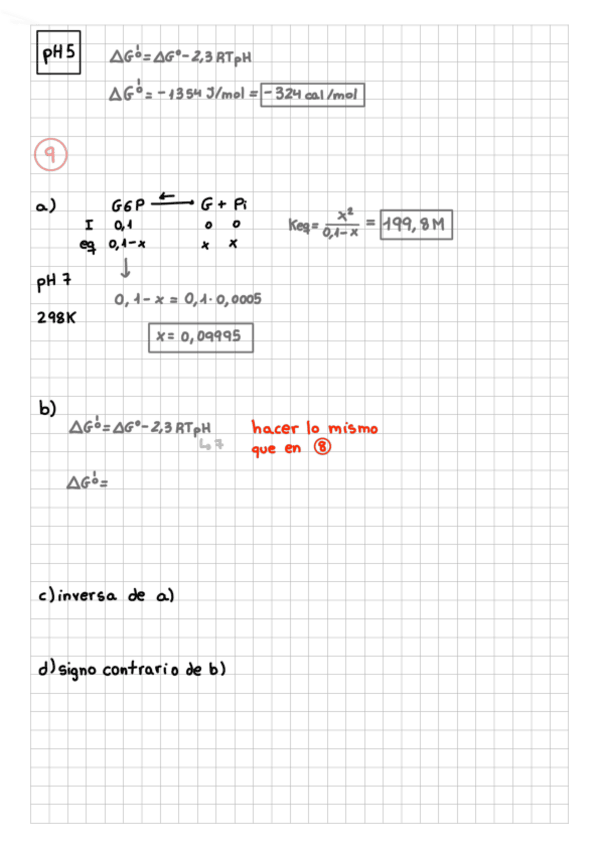 pH 5
ΔG°' = ΔG° - 2,3 RTpH
ΔG°' = - 1354 J/mol = - 324 cal/mol
9
a) G6P ⇄ G + Pi
I 0,1 0 0
eq 0,1-x x x
Keq = x²/0,1-x = 199,8 M
↓
pH 7
0,1-x = 0,1·0,0005
298K
x = 0,09995
b)
ΔG°' = ΔG° - 2,3 RTpH
↳ 7
hacer lo mismo
que en 8
ΔG°' =
c) inversa de a)
d) signo contrario de b)